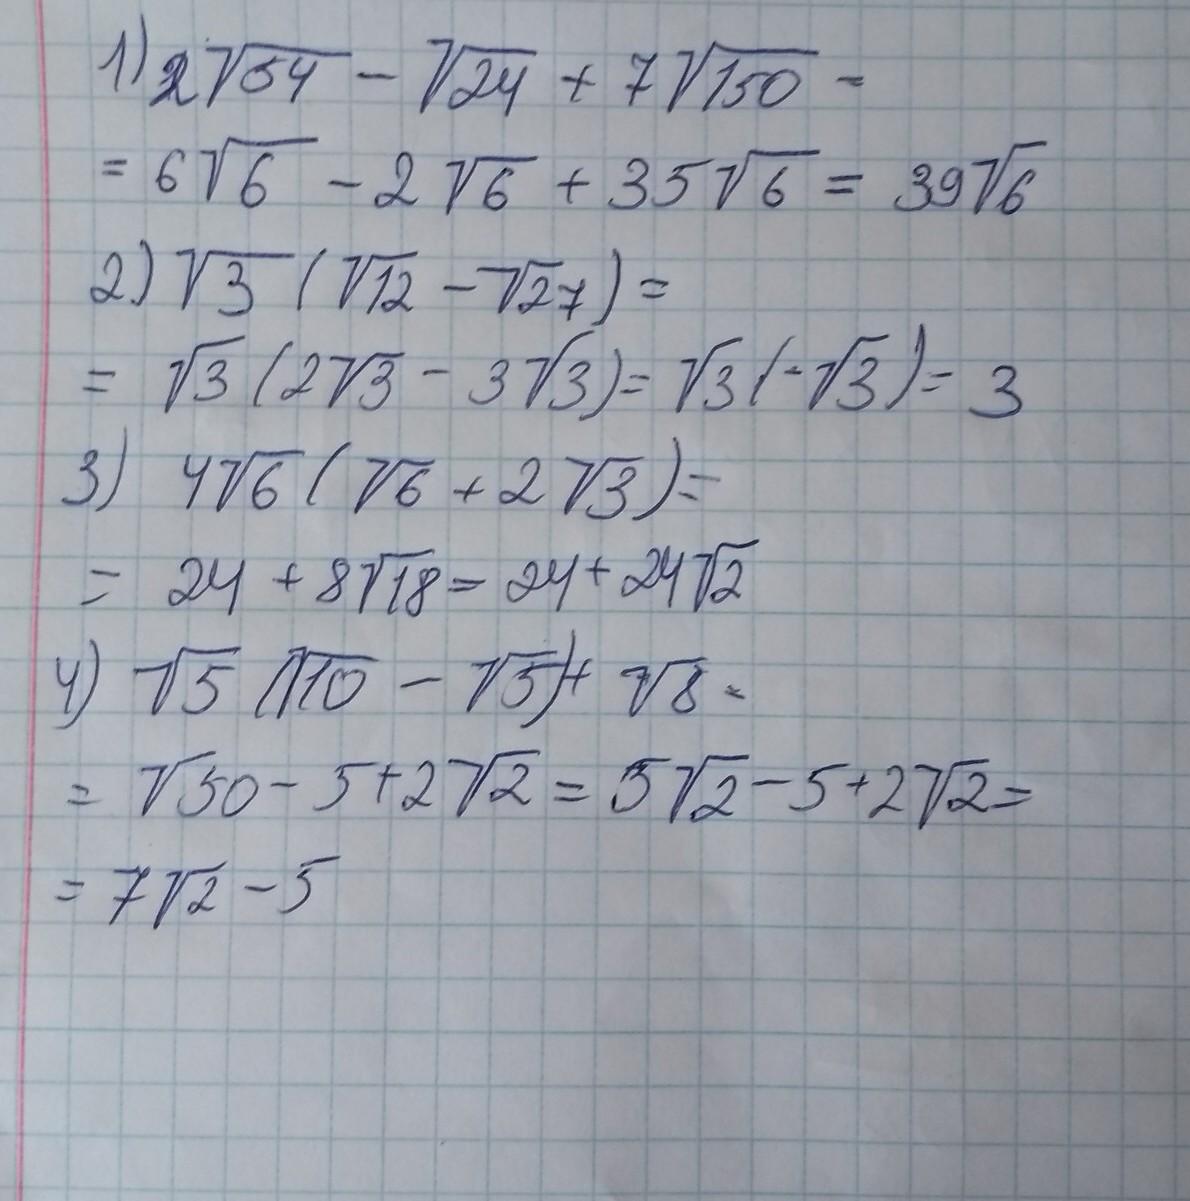 1) 2√54 - √24 + 7√150 -
= 6√6 - 2√6 + 35√6 = 39√6
2) √3 (√12 - √27) =
= √3 (2√3 - 3√3) = √3 (-√3) = 3
3) 4√6 (√6 + 2√3) =
= 24 + 8√18 = 24 + 24√2
4) √5 (√10 - √5) + √8 =
= √50 - 5 + 2√2 = 5√2 - 5 + 2√2 =
= 7√2 - 5